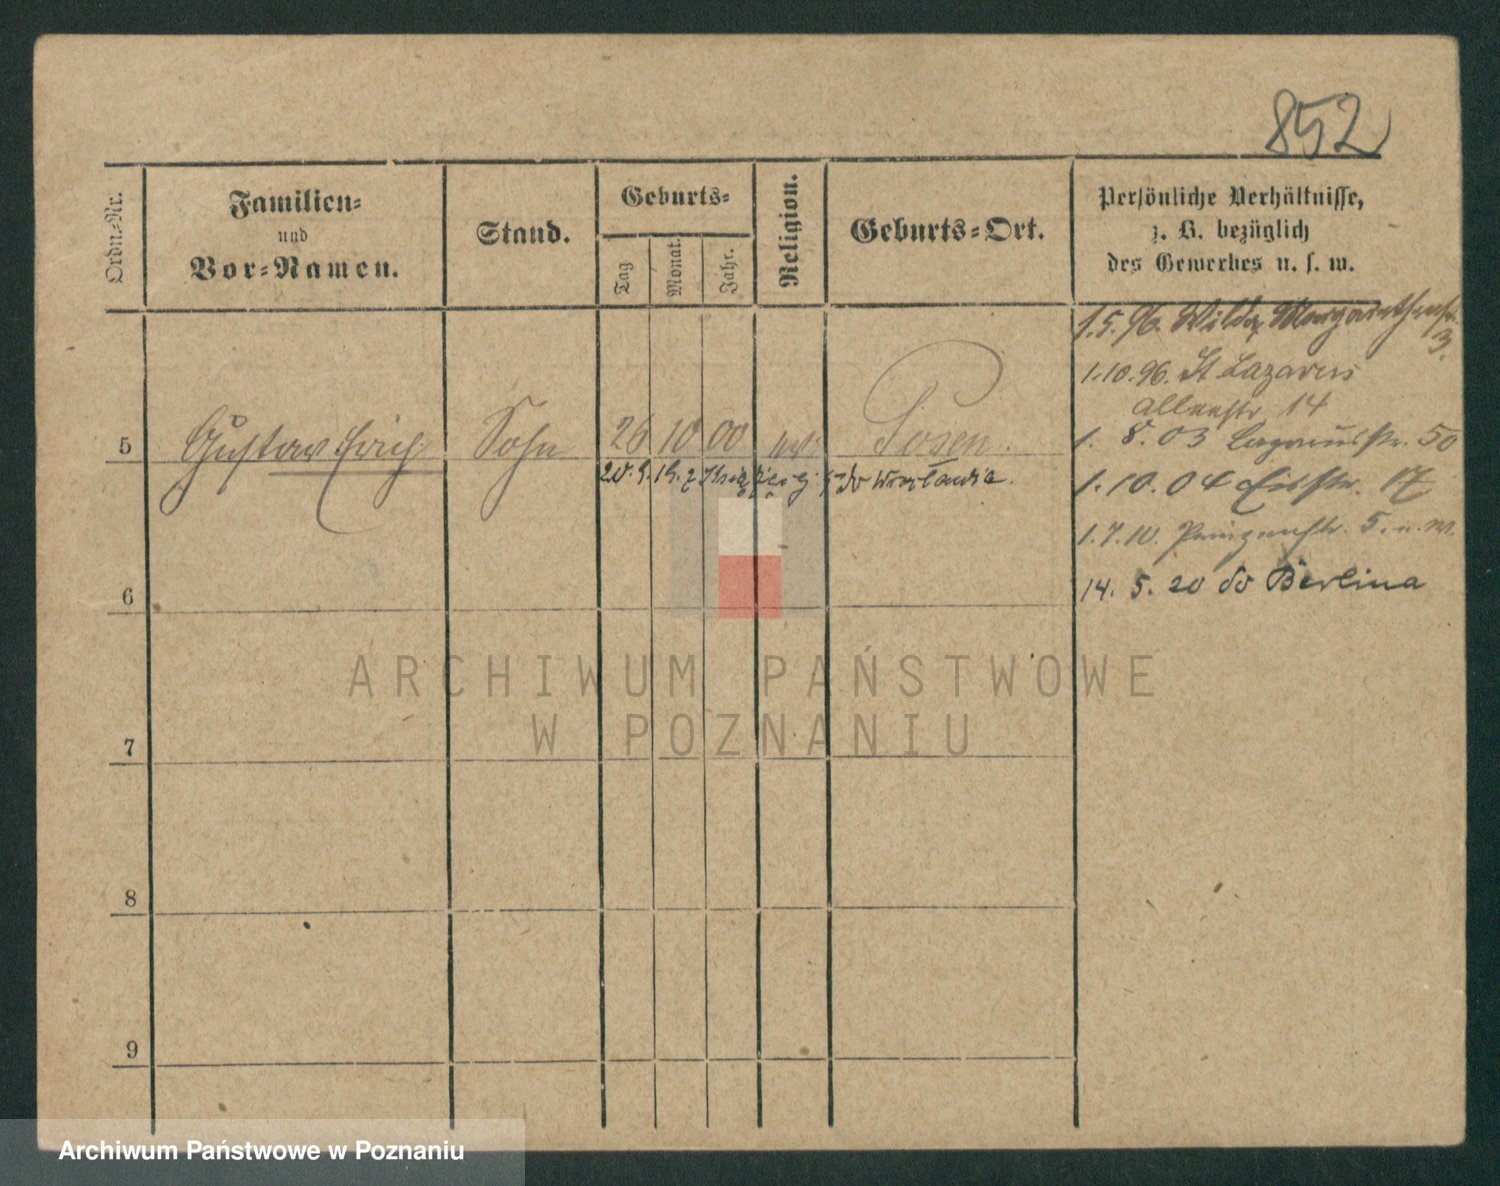 852
Ordn.-Nr.
Familien-
und
Vor-Namen.
Stand.
Geburts-
Tag
Monat.
Jahr.
Religion.
Geburts-Ort.
Persönliche Verhältnisse,
z. B. bezüglich
des Gewerbes u. s. w.
1.5.96. Wilda Margarethenstr.
3.
1.10.96. St Lazarus
14
5 Gustav Erich Sohn 26 10 00 ev. Posen.
1. 8. 03 Lazarusstr. 50
20. 9. 19. do
1.10.04 17
1.7.10. Prinzenstr. 5.
14. 5. 20 do Berlina
6
ARCHIWUM PAŃSTWOWE
W POZNANIU
7
8
9
Archiwum Państwowe w Poznaniu